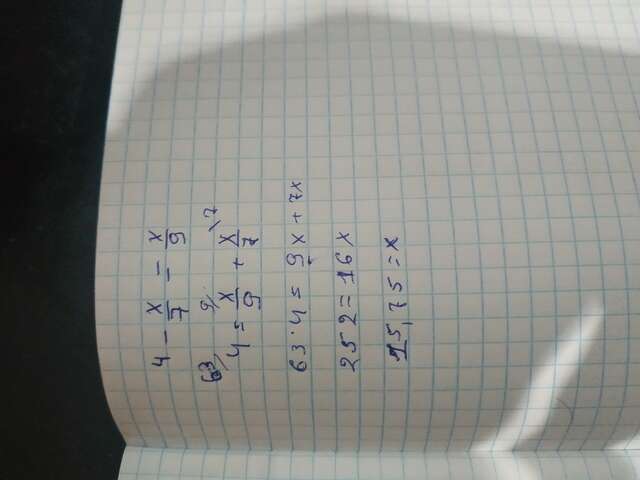 4 - x/7 = x/9
63/ 4 = 9/ x/9 + x/7 \7
63·4 = 9x + 7x
252 = 16x
15,75 = x